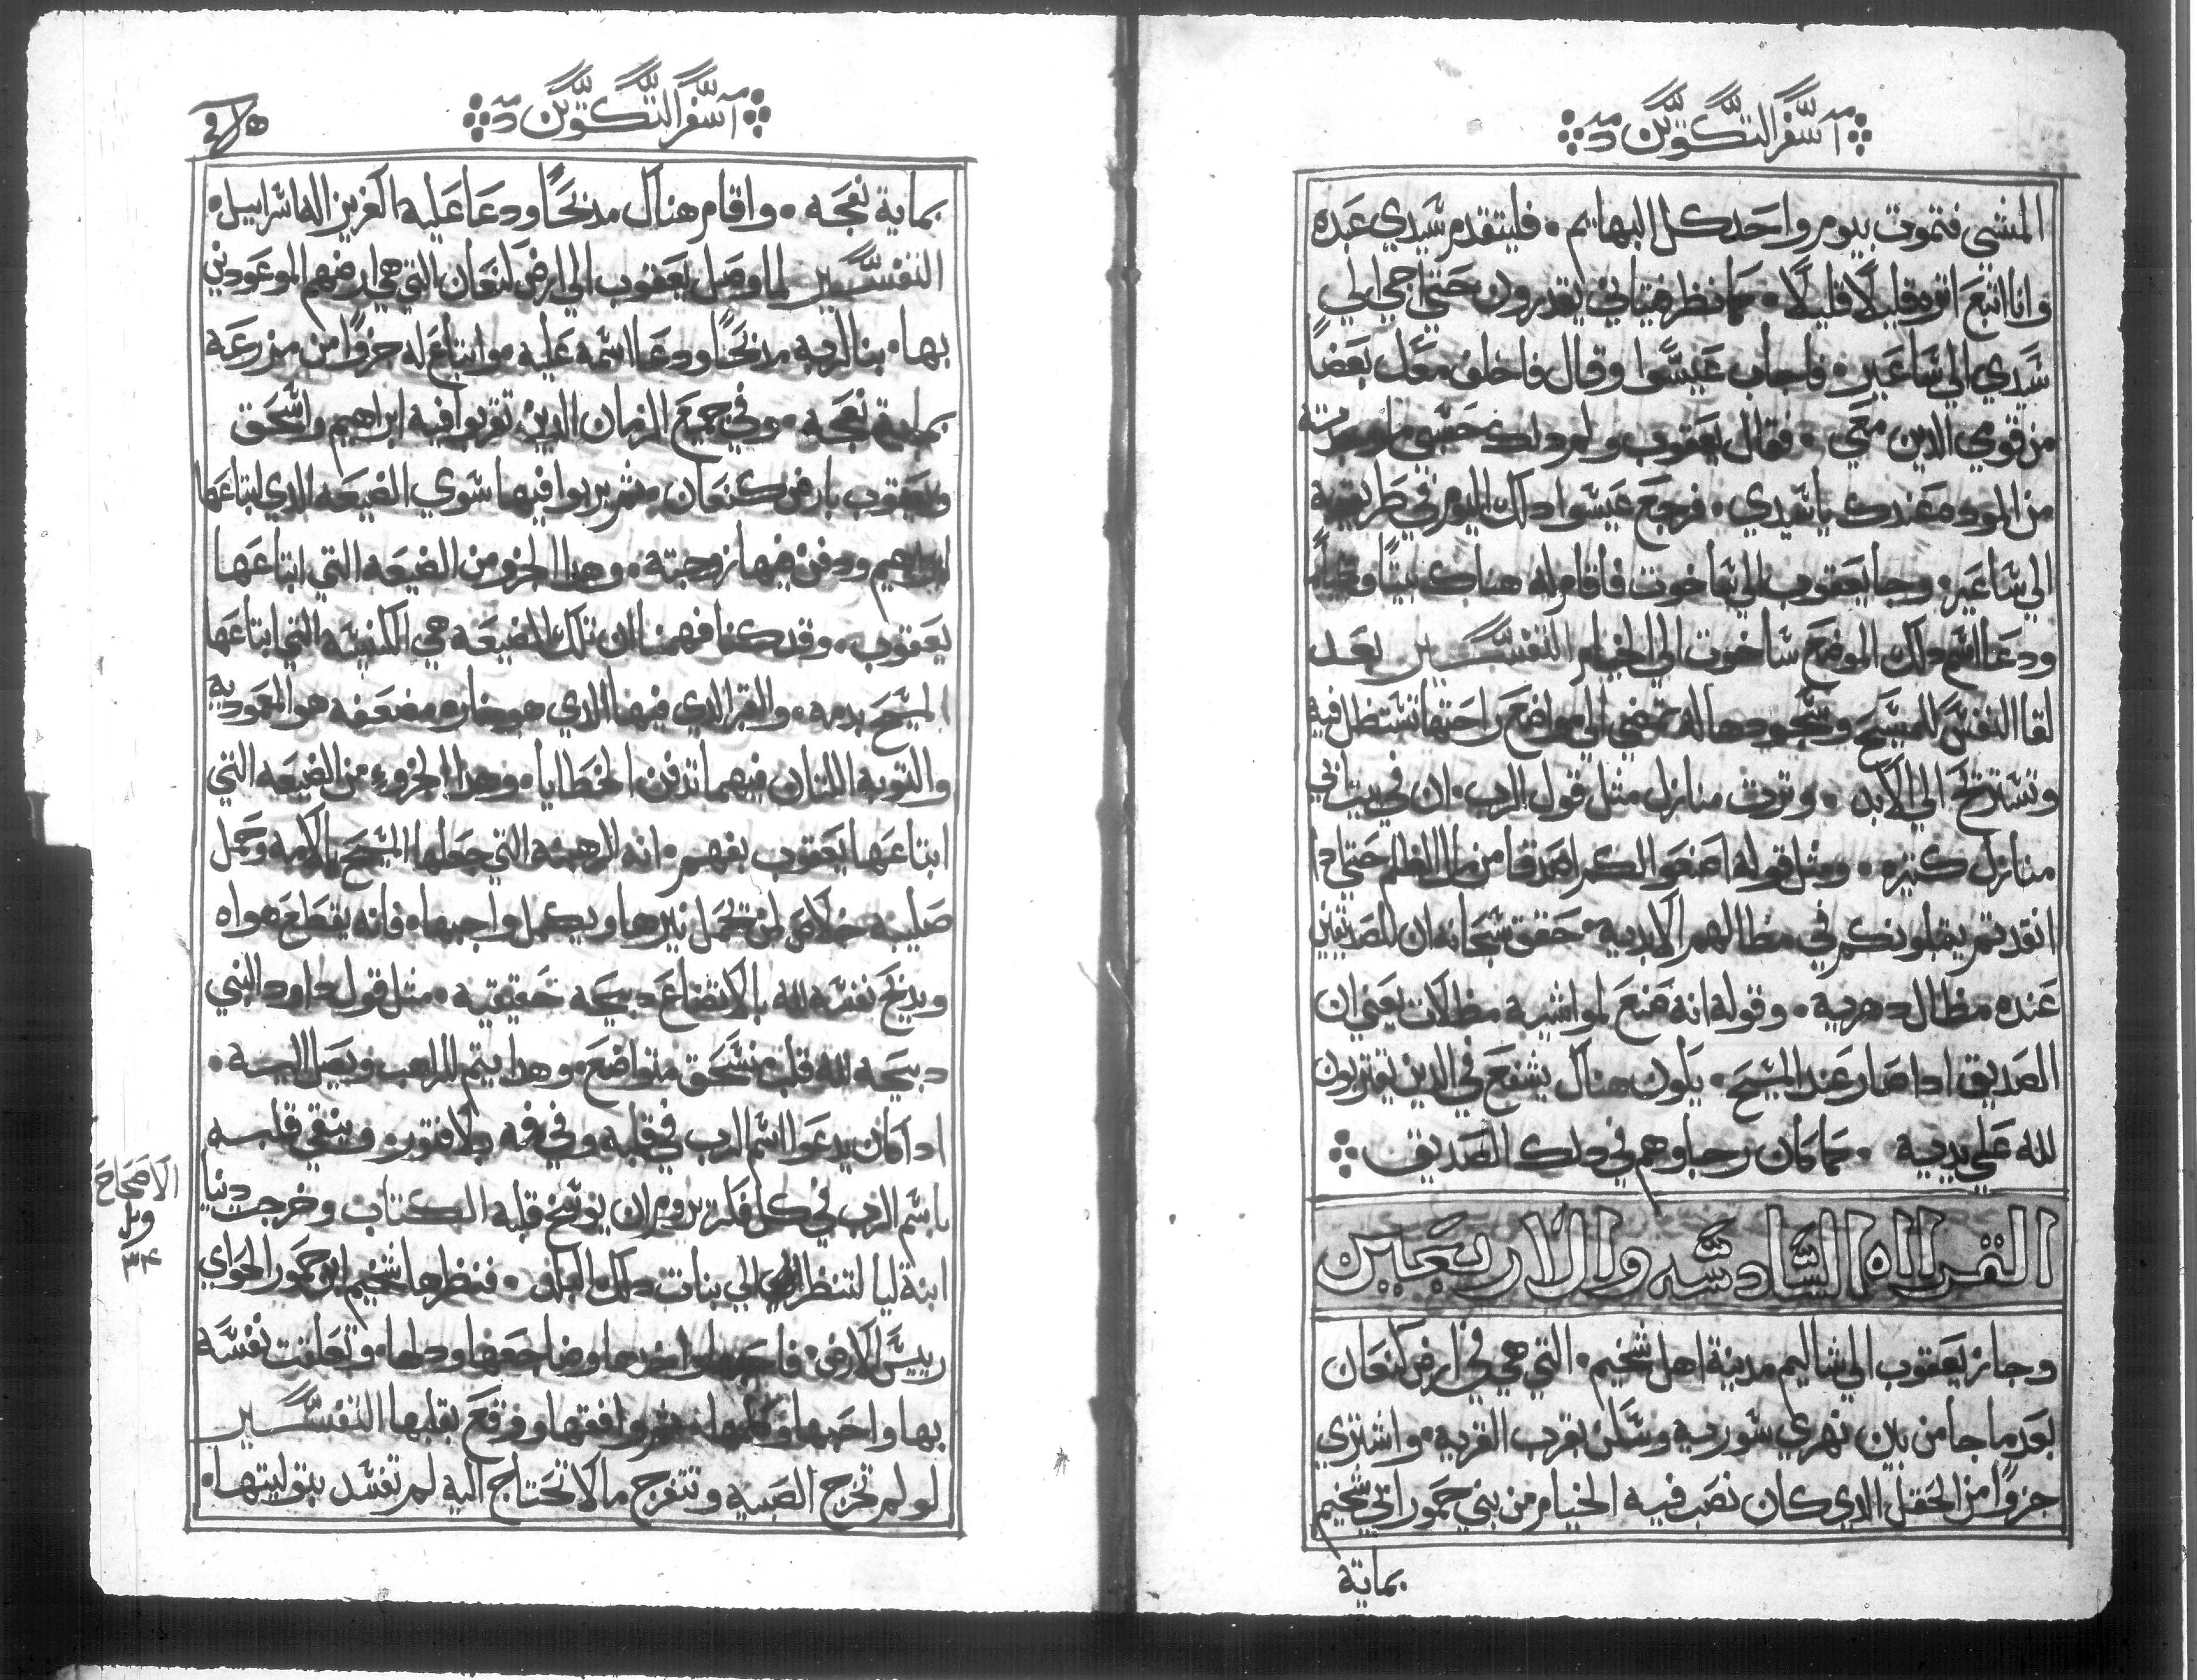 سفر التكوين
المشي فتموت بيوم واحد كل البهايم . فليتقدم سيدي عبده
وانا اتبع اثره قليلًا قليلًا . كما نظر فتياني يقدرون حتي اجي الي
سيدي الي ساعير . فاجاب عيسوا وقال فاخلف معك بعضًا
من قومي الدين معي . فقال يعقوب ولم دلك حسبي ما وجدته
من الموده عندك يا سيدي . فرجع عيسوا دلك اليوم في طريقه
الي ساعير . وجا يعقوب الي ساخوت فاقام له هناك بيتًا وخيامًا
ودعا اسم دلك الموضع ساخوت الي الخيام التفسير بعد
لقا النفس للمسيح وسجودها له تمضي الي مواضع راحتها تستظل فيه
وتستريح الي الابد . وترت منازل مثل قول الرب . ان في بيت ابي
منازل كتيره . ومثل قوله اصنعوا لكم اصدقا من مال الظلم حتي ادا
انفدتم يقبلونكم في مظالهم الابديه . حقق سبحانه ان للصديقين
عنده مظال دهريه . وقوله انه صنع لمواشيه مظلات يعني ان
الصديق ادا صار عند المسيح . يكون هناك يشفع في الدين تقربون
لله علي يديه . كما كان رحبا وهم في دلك الصديق
القراه السادسه والاربعين
وجاز يعقوب الي شاليم مدينة اهل شخيم . التي هي في ارض كنعان
بعد ما جا من بين نهري سوريه وسكن بقرب القريه . واشتري
جزوًا من الحقل الدي كان نصب فيه الخيام من بني حمور ابي شخيم
بماية
سفر التكوين
بماية نعجه . واقام هناك مدبحًا ودعا عليه العزيز اله اسراييل .
التفسير لما وصل يعقوب الي ارض كنعان التي هي ارضهم الموعودين
بها . بنا لربه مدبحًا ودعا اسمه عليه . وابتاع له جزوًا من مزرعه
بماية نعجه . وفي جميع الزمان الدين تغربوا فيه ابراهيم واسحق
ويعقوب بارض كنعان . لم يربوا فيها سوي الضيعه الدي ابتاعها
ابراهيم ودفن فيها زوجته . وهدا الجزو من الضيعه التي ابتاعها
يعقوب . وقد كنا فهمنا ان تلك الضيعه هي الكنيسه التي ابتاعها
المسيح بدمه . والقبر الدي فيها الدي هو مغاره مضعفه هو المعموديه
والتوبه اللتان فيهما تدفن الخطايا . وهدا الجزوء من الضيعه التي
ابتاعها يعقوب يفهم . انه الرهبنه التي جعلها المسيح بالامه وحمل
صليبه خلاص لمن تحمل نيرها ويكمل واجبها . فانه يقطع هواه
ويدبح نفسه لله بالاتضاع دبيحه حقيقيه . مثل قول داود النبي
دبيحه لله قلب منسحق متواضع . وهدا يتم للراهب ويصل اليه .
ادا كان يدعوا اسم الرب في قلبه وفي فمه بلا فتور . وينقي قلبه
باسم الرب في كل فكر يروم ان يوسخ قلبه الكتاب وخرجت دينا
ابنة ليا لتنظر الي بنات دلك البلد . فنظرها شخيم ابن حمور الحواي
رييس الارض . فاحبها واخدها وضاجعها ودلها . وتعلقت نفسه
بها واحبها وكلمها . ثم وافقها ووقع بقلبها التفسير
لو لم تخرج الصبيه وتتفرج ما لا تحتاج اليه لم تفسد بتوليتها .
الاصحاح
٣٤